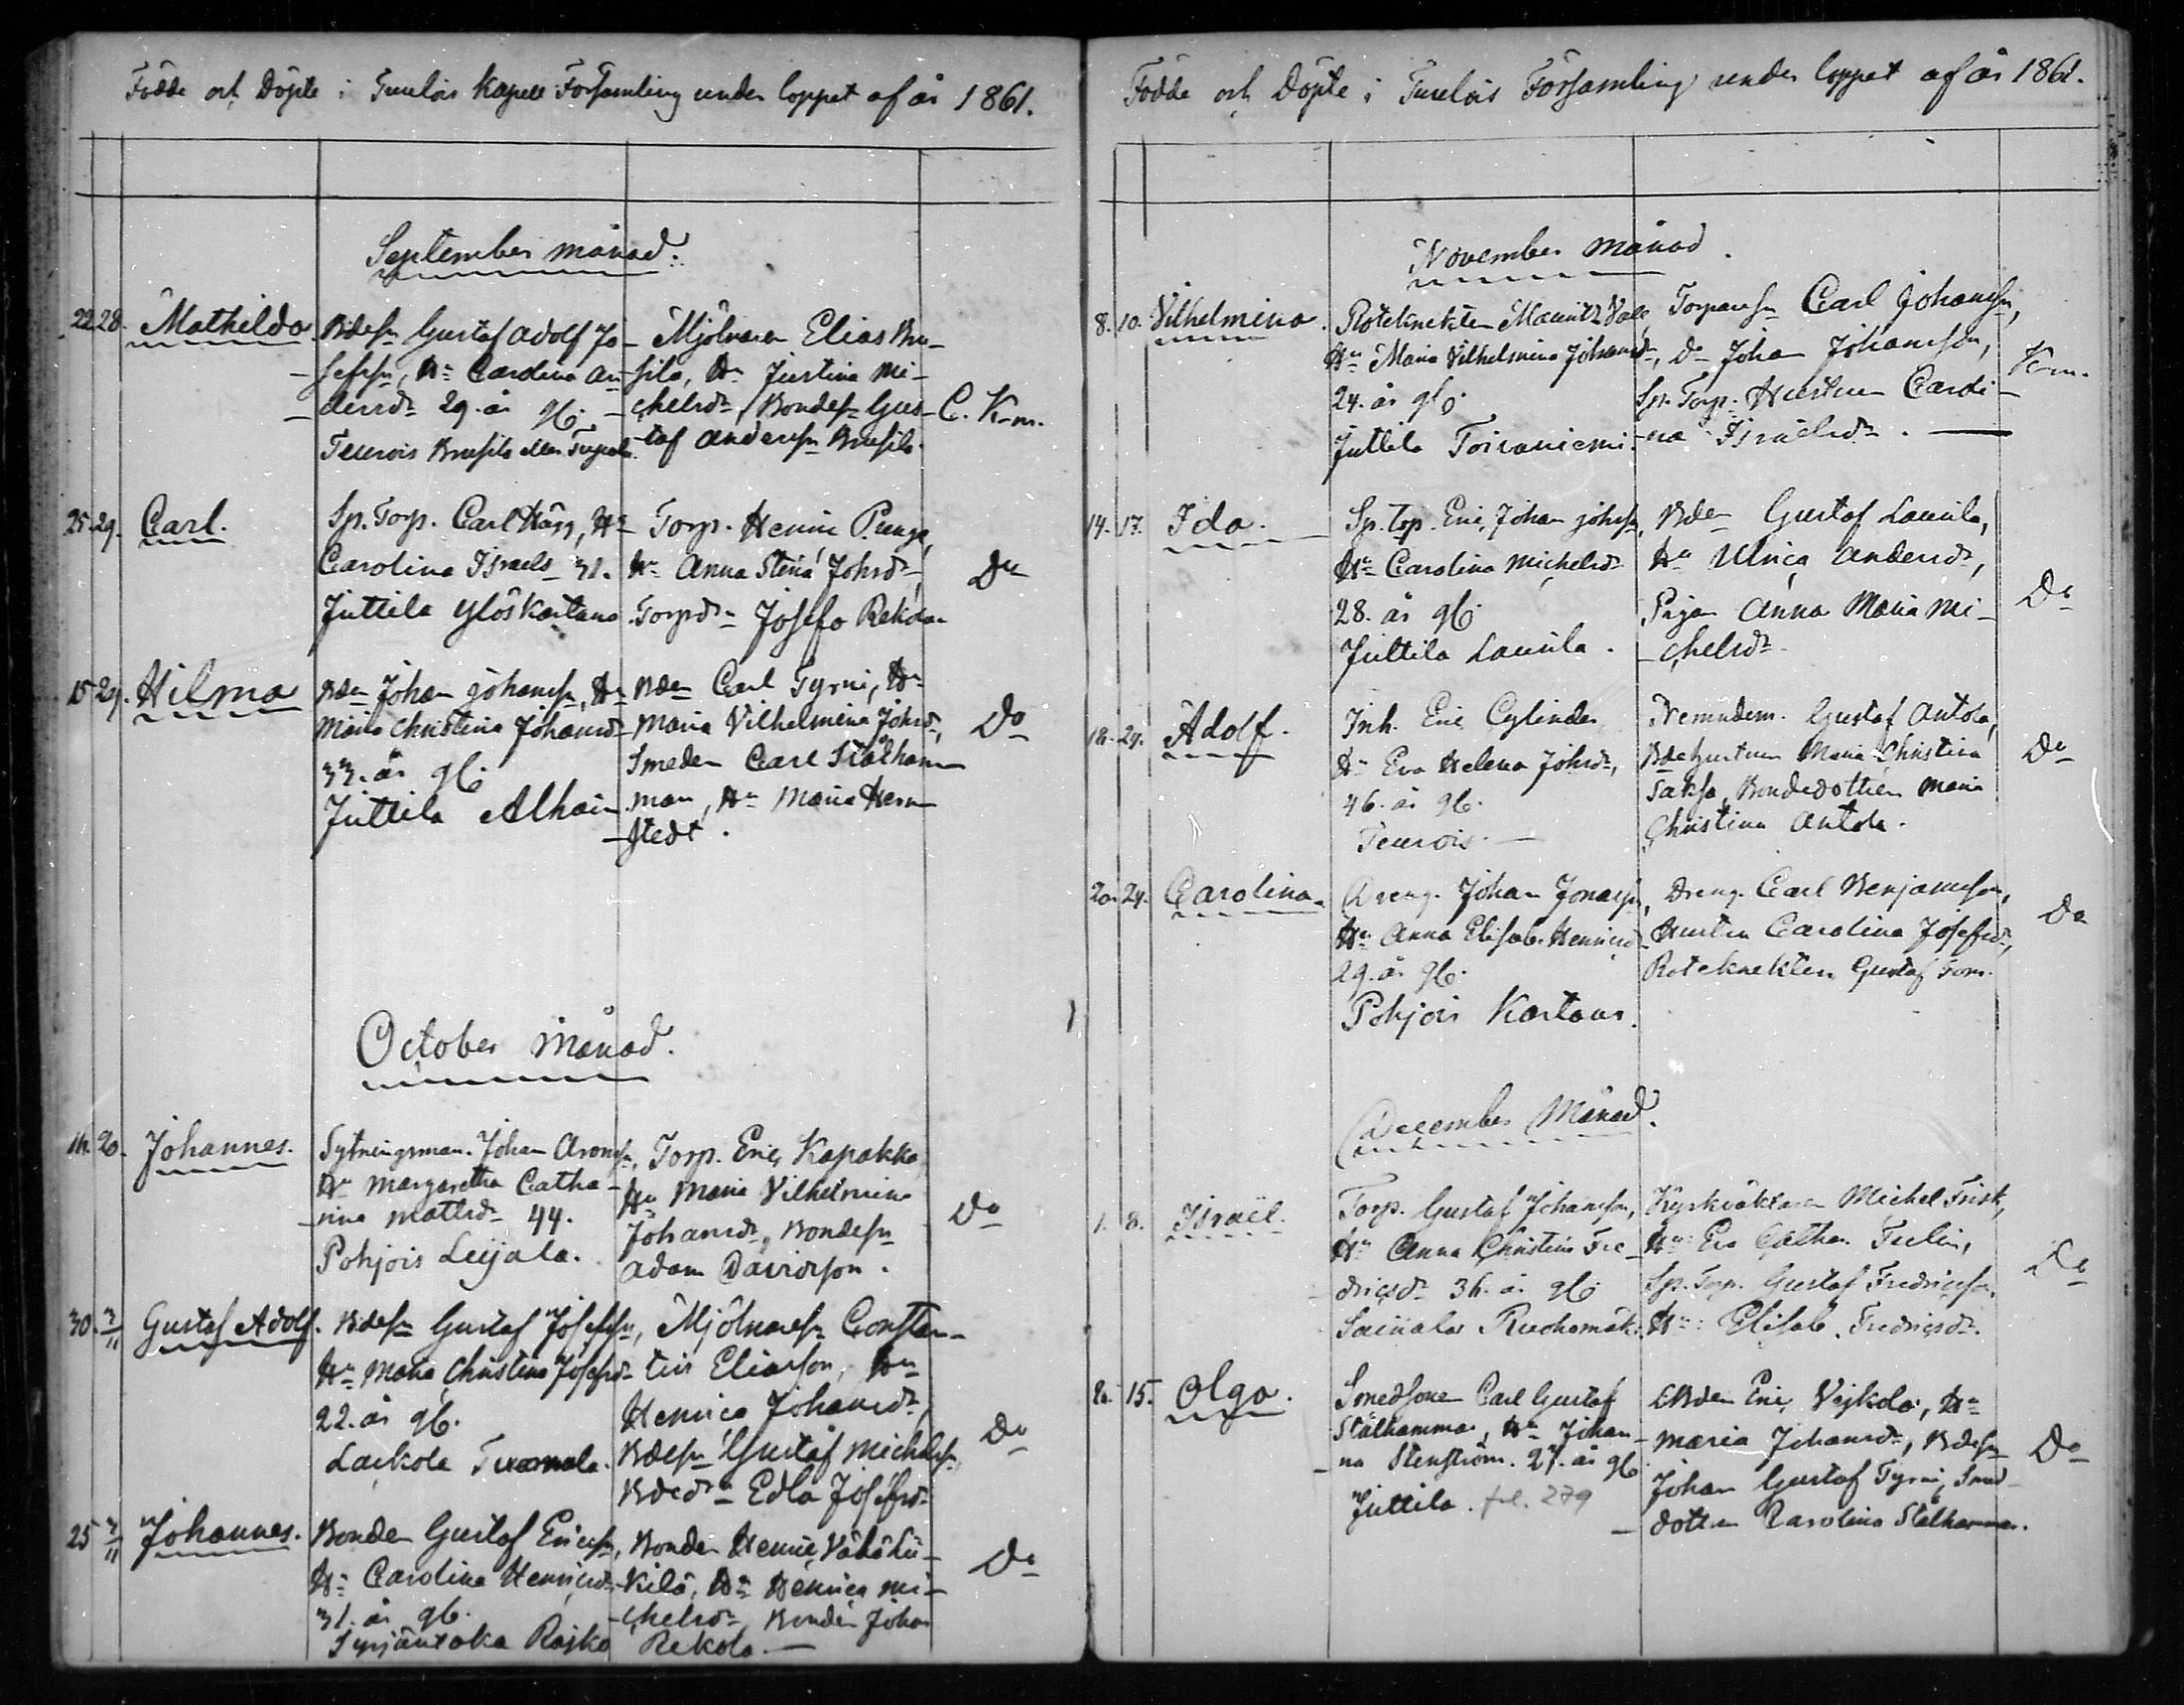 Födde och Döpte i Tuulois Kapell Församling under loppet af år 1861.
September månad.
22 28. Mathilda. Bdesn Gustaf Adolf Jo-
sefsn, Hu Carolina An-
dersdr 29. år gl.
Teurois Brusila
Mjölnaren Elias Bru-
sila, Hu Justina Mi-
chelsdr, Bondesn Gus-
taf Andersn Brusila.
C. K-m.
25 29. Carl.
Sp. Torp. Carl Hägg, Hu
Carolina Israels 31.
Juttila Ylöskartano
Torp. Henric Punga,
Hu Anna Stina Johsdr,
Torpdr Josefa Rekola
Do
15 29. Hilma
Bden Johan Johanssn, Hu
Maria Christina Johansdr
33. år gl.
Juttila Alhain
Bden Carl Tyrni, Hu
Maria Vilhelmina Johsdr,
Smeden Carl Stålham-
mar, Hu Maria Hern-
stedt.
Do
October Månad.
14. 20. Johannes.
Sytningsman. Johan Aronsn,
Hu Margaretha Catha-
rina Mattsdr 44.
Pohjois Leijala.
Torp. Eric Kapakka
Hu Maria Vilhelmina
Johansdr, Bondesn
Adam Davidsson.
Do
30. 3/11 Gustaf Adolf.
Bdesn Gustaf Josefssn,
Hu Maria Christina Josefsdr
22. år gl.
Laikola Tuomola.
Mjölnaresn Constan-
tin Eliasson, Hu
Henrica Johansdr,
Bdesn Gustaf Michelsn,
Bdedr Edla Josefsdr
Do
25 3/11 Johannes.
Bonden Gustaf Ericssn,
Hu Carolina Henricsdr
31. år gl.
Syrjäntaka Rajko
Bonden Henric Vähälii-
kilä, Hu Henrica Mi-
chelsdr, Bonden Johan
Rekola.
Do
Födde och Döpte i Tuulois Församling under loppet af år 1861.
November månad.
8. 10. Vilhelmina.
Roteknekten Mauritz Vale
Hu Maria Vilhelmina Johansdr,
24. år gl.
Juttila Toivaniemi.
Torparesn Carl Johanssn,
Do Johan Johansson,
Sp. Torp. Hustrun Caroli-
na Israelsdr.
K-m.
14. 17. Ida.
Sp. Torp. Eric Johan Johssn,
Hu Carolina Michelsdr
28. år gl.
Juttila Laurila.
Bden Gustaf Laurila,
Hu Ulrica Andersdr,
Pigan Anna Maria Mi-
chelsdr.
Do
18. 24. Adolf.
Inh. Eric Cylinder
Hu Eva Helena Johsdr,
46. år gl.
Teurois.
Nemndem. Gustaf Antola,
Bdehustrun Maria Christina
Saksa, Bondedottren Maria
Christina Antola.
Do
20. 24. Carolina.
Dreng. Johan Jonassn,
Hu Anna Elisab. Henricsdr
29. år gl.
Pohjois Kartano.
Dreng. Carl Benjamsson,
Hustru Carolina Josefsdr,
Roteknekten Gustaf Tom.
Do
December Månad.
1. 8. Israël.
Torp. Gustaf Johansson,
Hu Anna Christina Fre-
dricsdr 36. år gl.
Sairiala Ruohomäki.
Kyrkväktaren Michel Frisk,
Hu Eva Cathar. Tulin,
Sp. Torp. Gustaf Fredricssn.
Hu Elisab. Fredricsdr.
Do
8. 15. Olga.
Smedsonen Carl Gustaf
Stålhammar, Hu Johan-
na Stenström. 27. år gl
Juttila. fl. 279
Bden Eric Vejkola, Hu
Maria Johansdr, Bdesn
Johan Gustaf Tyrni, Smed-
dottren Carolina Stålhammar.
Do